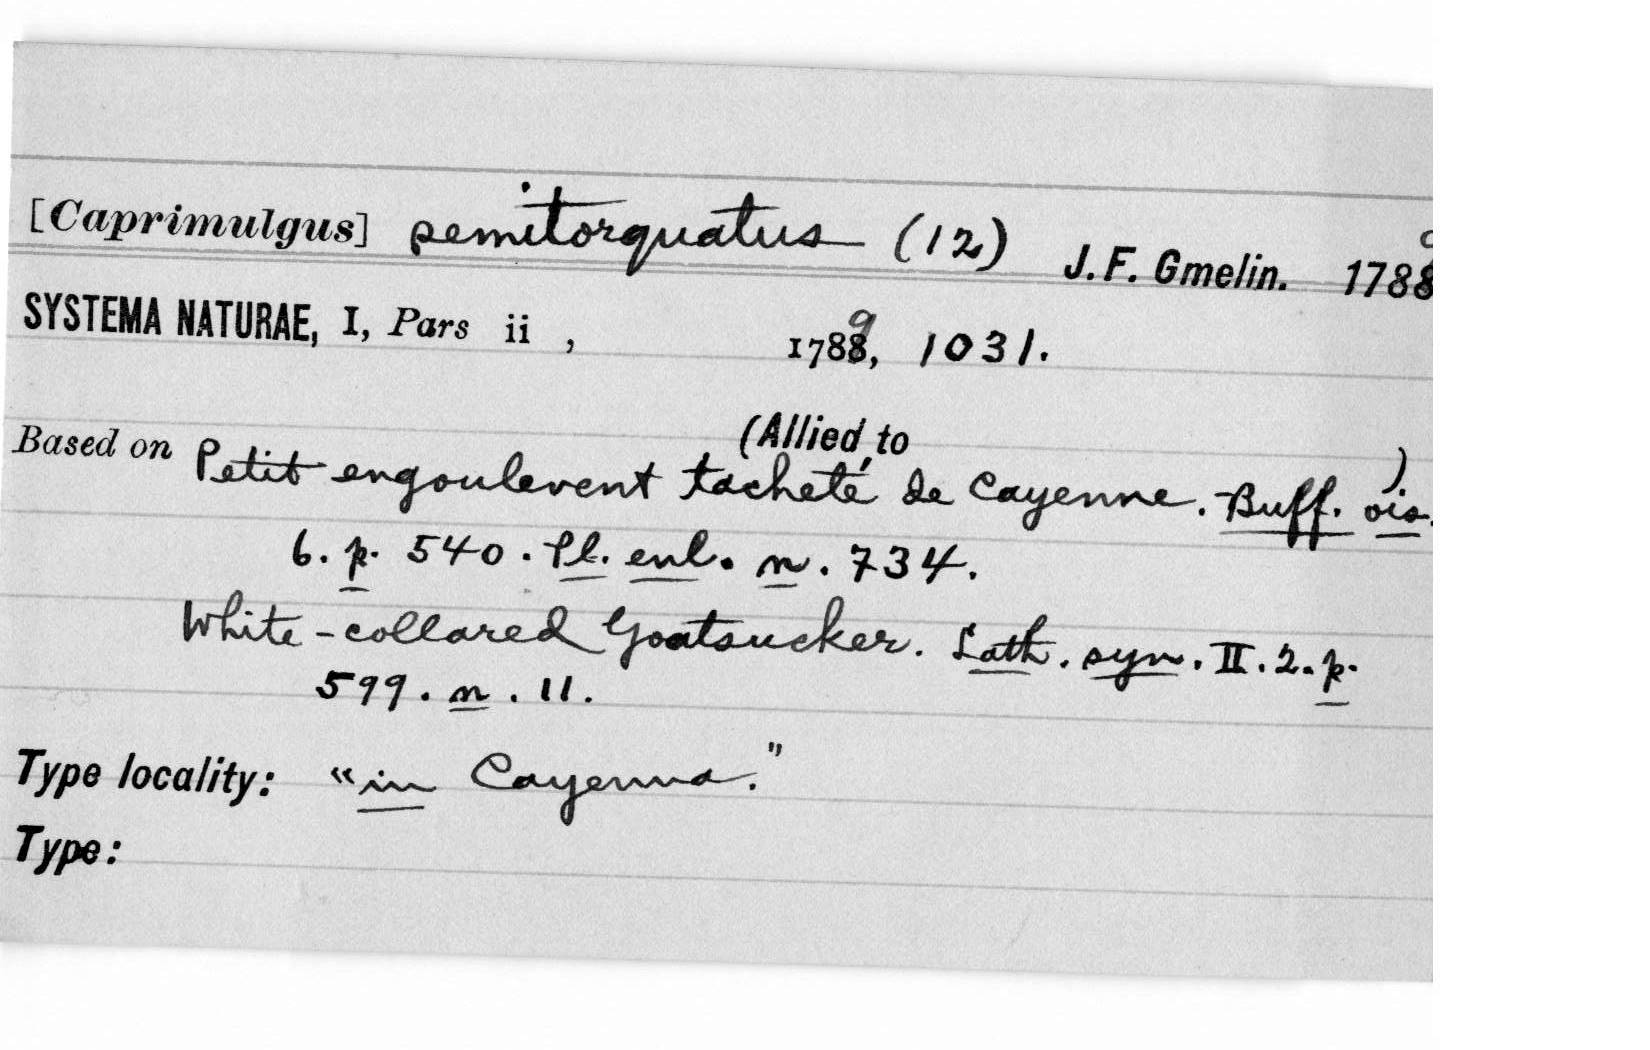 [Caprimulgus] semitorquatus (12) J. F. Gmelin. 1789
SYSTEMA NATURAE, I, Pars ii , 1789, 1031.
(Allied to )
Based on Petit engoulevent tacheté de Cayenne. Buff. ois.
6. p. 540. Pl. enl. n. 734.
White-collared Goatsucker. Lath. syn. II. 2. p.
599. n. 11.
Type locality: "in Cayenna."
Type: